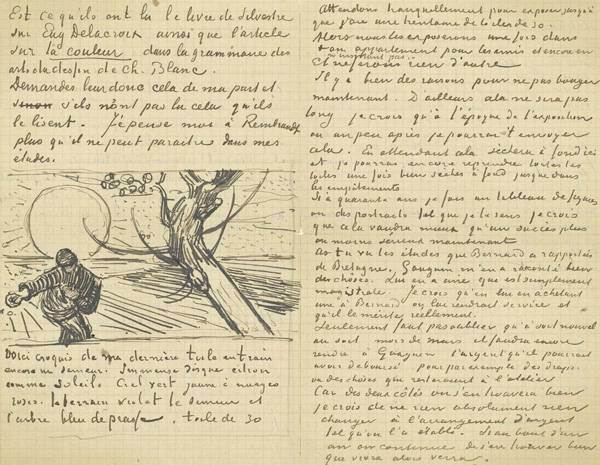 Est ce qu'ils ont lu le livre de Silvestre
sur Eug Delacroix ainsi que l'article
sur la couleur dans la grammaire des
arts du dessin de Ch. Blanc.
Demandes leur donc cela de ma part et
sinon s'ils n'ont pas lu cela qu'ils
le lisent. J'pense moi à Rembrandt
plus qu'il ne peut paraitre dans mes
études.
Voici croquis de ma dernière toile en train
encore un semeur. Immense disque citron
comme soleil. Ciel vert jaune à nuages
roses. le terrain violet le semeur et
l'arbre bleu de prusse. toile de 30
Attendons tranquillement pour exposer jusqu'à
que j'aie une trentaine de toiles de 30.
Alors nous les exposerons une fois dans
ton appartement pour les amis et encore en
n'insistant pas.
Et ne ferons rien d'autre
Il y a bien des raisons pour ne pas bouger
maintenant. D'ailleurs cela ne sera pas
long je crois qu'à l'époque de l'exposition
ou un peu après je pourrai t'envoyer
cela. En attendant cela sèchera à fond ici
et je pourrai encore reprendre toutes les
toiles une fois bien sèches à fond jusque dans
les empâtements
Si à quarante ans je fais un tableau de figures
ou des portraits tel que je le sens je crois
que cela vaudra mieux qu'un succès plus
ou moins sérieux maintenant
As tu vu les études que Bernard a rapportées
de Bretagne, Gauguin m'en a raconté bien
des choses. Lui en a une qui est simplement
magistrale. Je crois qu'en lui en achetant
une à Bernard on lui rendrait service et
qu'il le mérite réellement.
Seulement faut pas oublier qu'
au mois de mars il faudra encore
rendre à Gauguin l'argent qu'il pourrait
avoir déboursé pour par exemple des draps
ou des choses qui resteraient à l'atelier
Car des deux côtés on s'en trouvera bien
je crois de ne rien absolument rien
changer à l'arrangement d'argent
tel qu'on l'a établi. Si au bout d'un
an on continue de s'en trouver bien
que vivra alors verra.